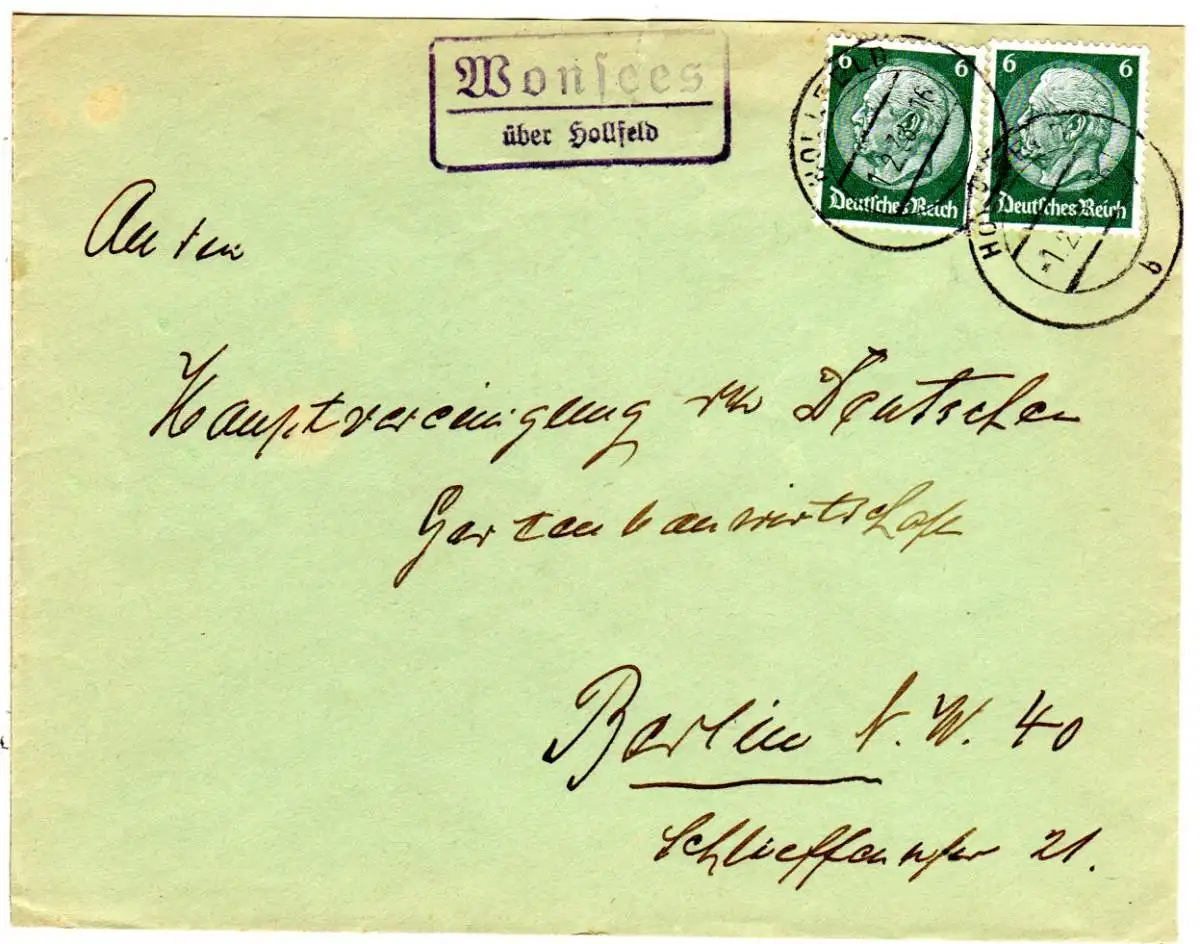 Wonsees
über Hollfeld
6 6
6 6
Deutsches Reich
Deutsches Reich
HOLLFELD
b
An den
Hauptvereinigung der Deutschen
Gartenbauwirtschaft
Berlin N.W. 40
Schlieffenufer 21.